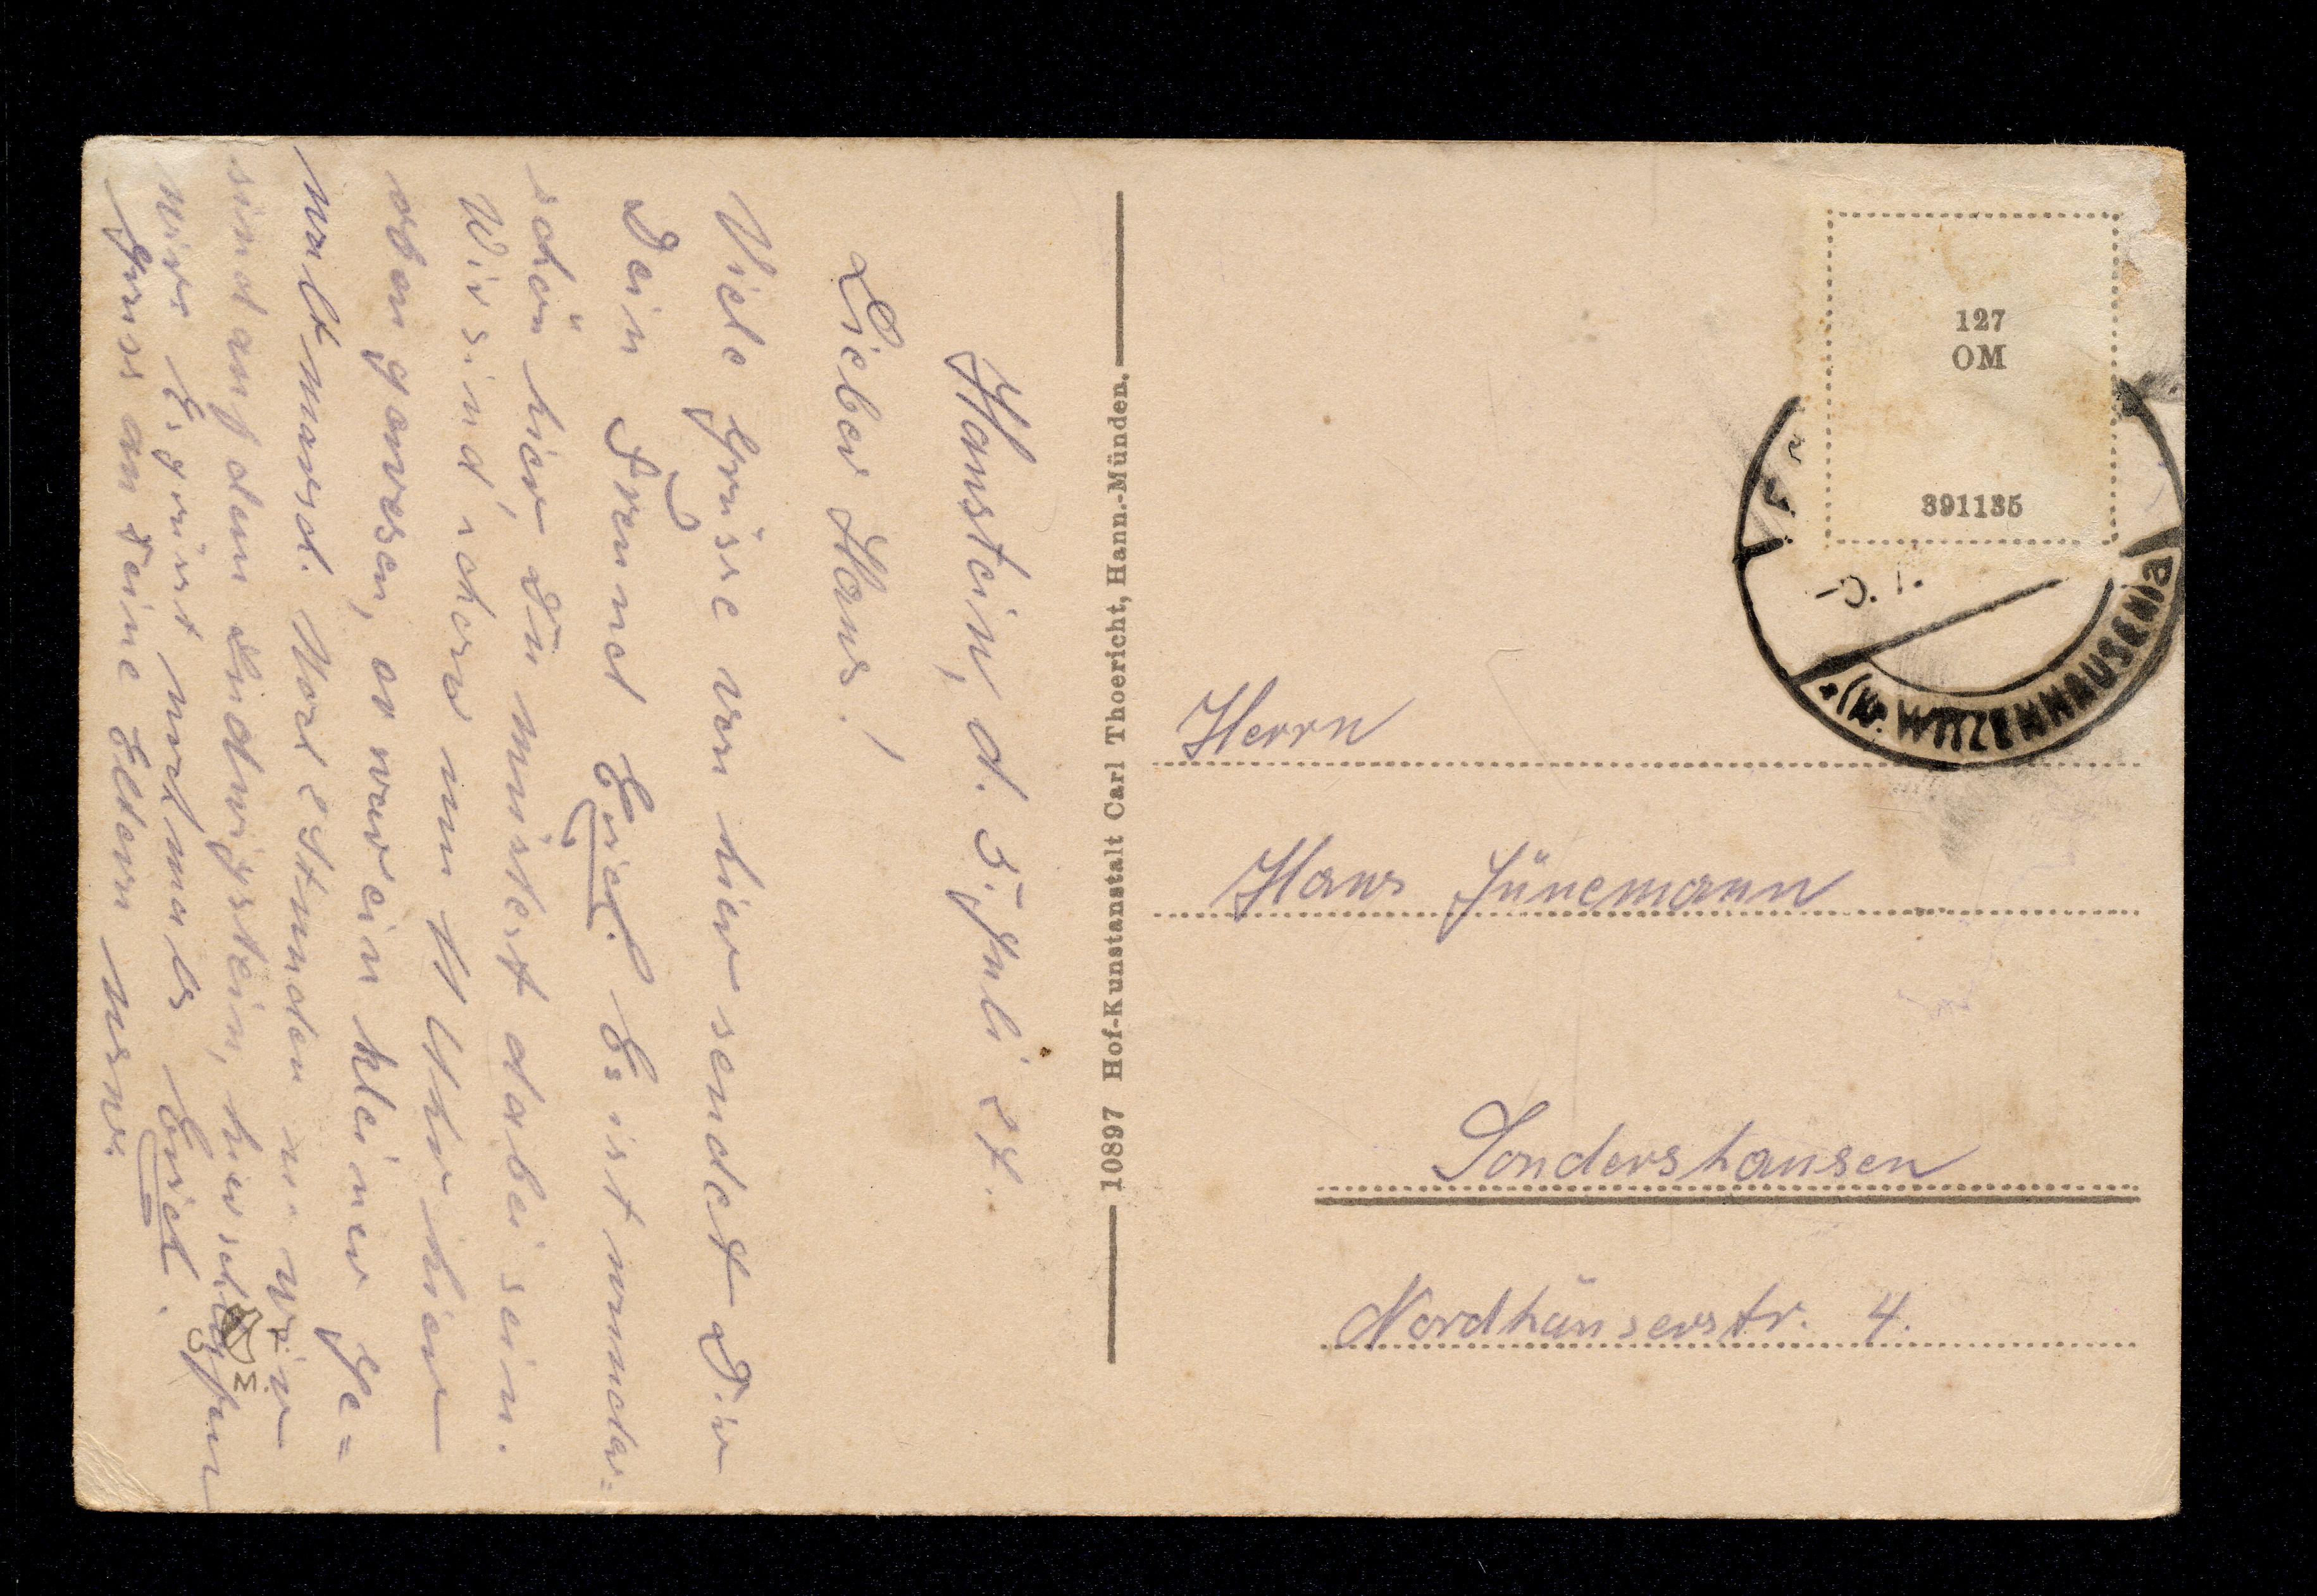 Hanstein, d. 5. Juli 27.
Lieber Hans!
Viele Grüsse von hier sendet Dir
Dein Freund Erich. Es ist wunder-
schön hier, Du müsstest dabei sein.
Wir sind schon um 11 Uhr hier
oben gewesen, es war ein kleiner Ge=
waltmarsch. Vor 2 Stunden wir
sind auf dem Ludwigstein, hier schlafen
wir. Es grüsst nochmals Erich.
Gruss an Deine Eltern
10897 Hof-Kunstanstalt Carl Thoericht, Hann.-Münden.
127
OM
391135
(Kr. WITZENHAUSEN) a
Herrn
Hans Jünemann
Sondershausen
Nordhäuserstr. 4.